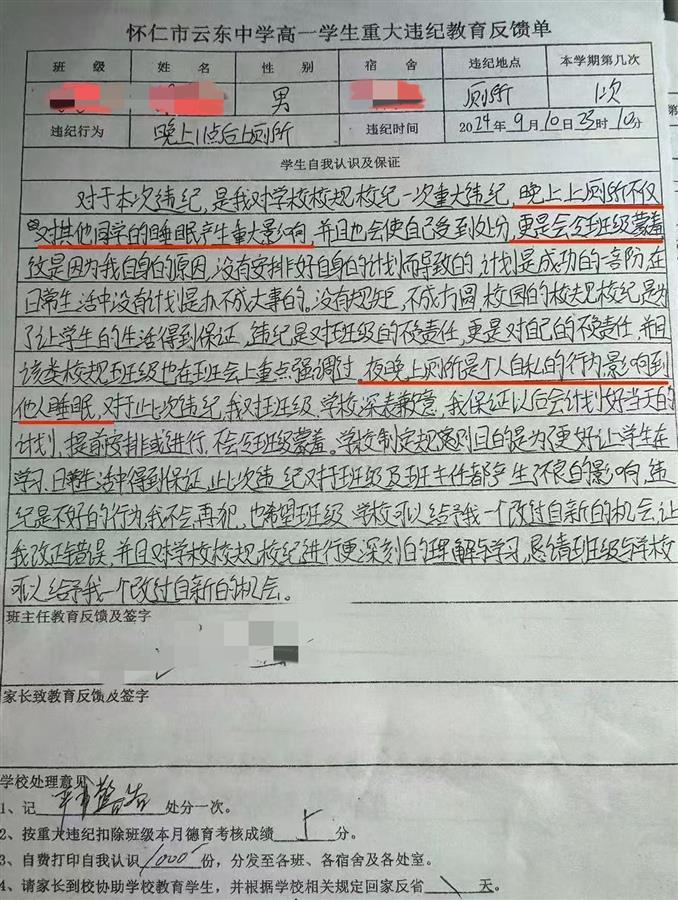 怀仁市云东中学高一学生重大违纪教育反馈单
班 级 姓 名 性 别 宿 舍 违纪地点 本学期第几次
男 厕所 1次
违纪行为 晚上11点后上厕所 违纪时间 2024年9月10日23时10分
学生自我认识及保证
对于本次违纪,是我对学校校规校纪一次重大违纪,晚上上厕所不仅
对其他同学的睡眠产生重大影响,并且也会使自己受到处分,更是会给班级蒙羞
这是因为我自身的原因,没有安排好自身的计划而导致的,计划是成功的一部份,在
日常生活中没有计划是办不成大事的。没有规矩,不成方圆,校园的校规校纪,是为
了让学生的生活得到保证,违纪是对班级的不负责任,更是对自己的不负责任,并且
该类校规班级也在班会上重点强调过。夜晚上厕所是个人自私的行为影响到
他人睡眠,对于此次违纪,我对班级、学校深表歉意,我保证以后会计划好当天的
计划,提前安排或进行,不会给班级蒙羞。学校制定规章则目的是为了更好让学生在
学习、日常生活中得到保证,此次违纪对于班级及班主任都产生了不良的影响,违
纪是不好的行为,我不会再犯,也希望班级、学校可以给予我一个改过自新的机会,让
我改正错误,并且对学校校规校纪进行更深刻的理解与学习,恳请班级与学校
可以给予我一个改过自新的机会。
班主任教育反馈及签字
家长致教育反馈及签字
学校处理意见
1、记 严重警告 处分一次。
2、按重大违纪扣除班级本月德育考核成绩 分。
3、自费打印自我认识 1000 份,分发至各班、各宿舍及各处室。
4、请家长到校协助学校教育学生,并根据学校相关规定回家反省 \ 天。